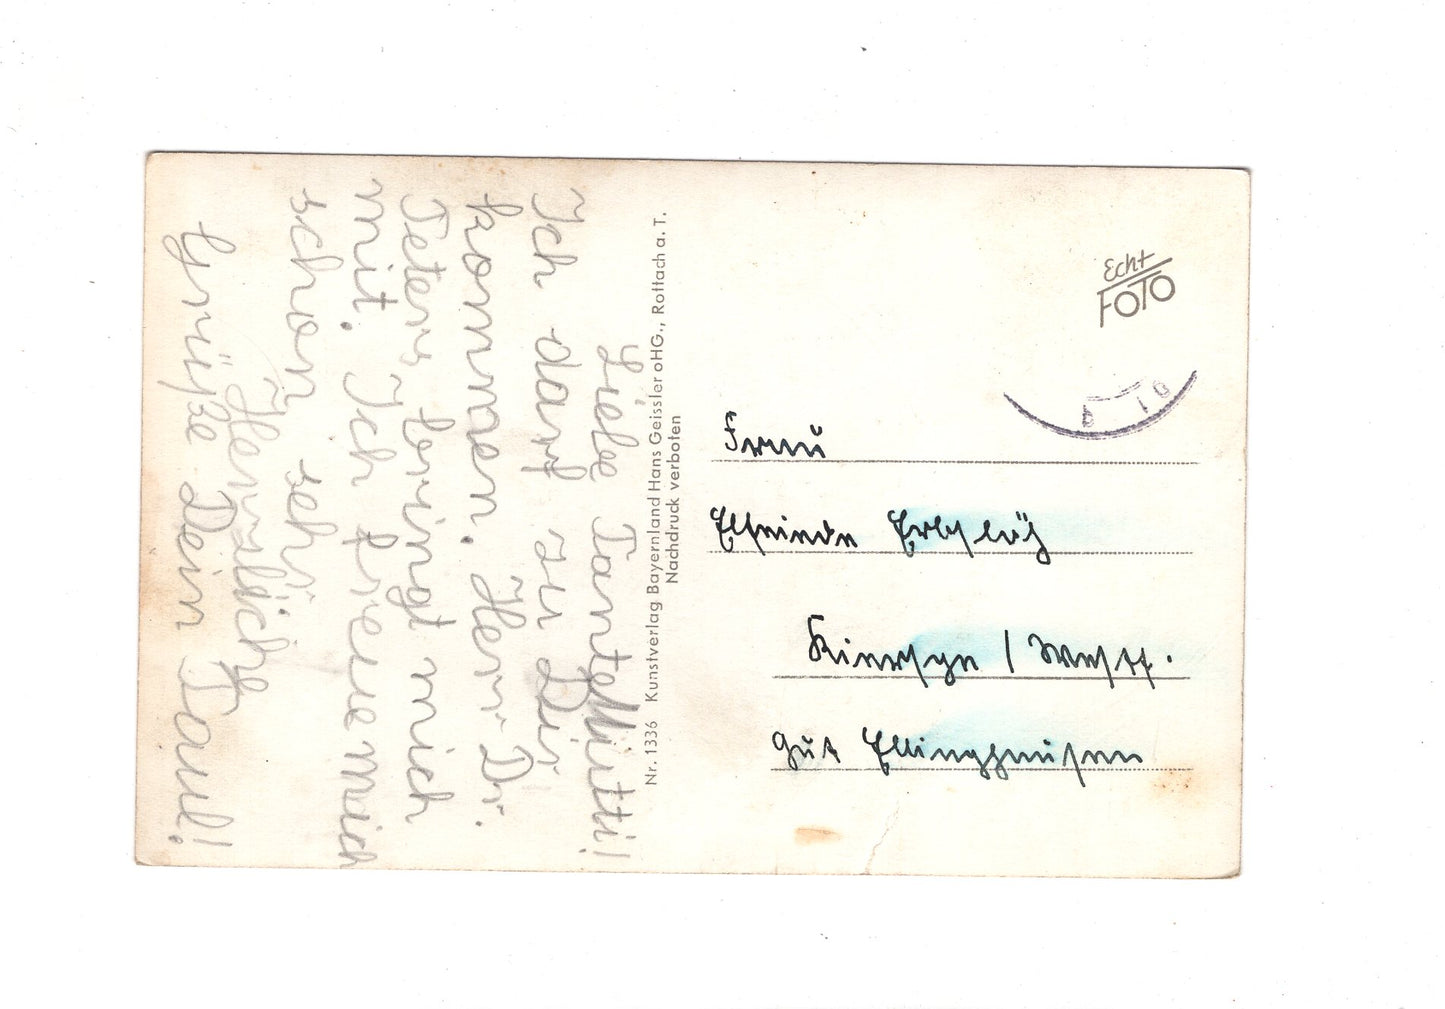 Liebe Tante Mutti!
Ich darf zu Dir
kommen. Herr Dr.
Peters bringt mich
mit. Ich freue mich
schon sehr
Herzliche
Grüße Dein Paul!
Nr. 1336 Kunstverlag Bayernland Hans Geissler oHG., Rottach a. T.
Nachdruck verboten
Echt
FOTO
Frau
Elfriede Erbslöh
Kierspe / Westf.
Gut